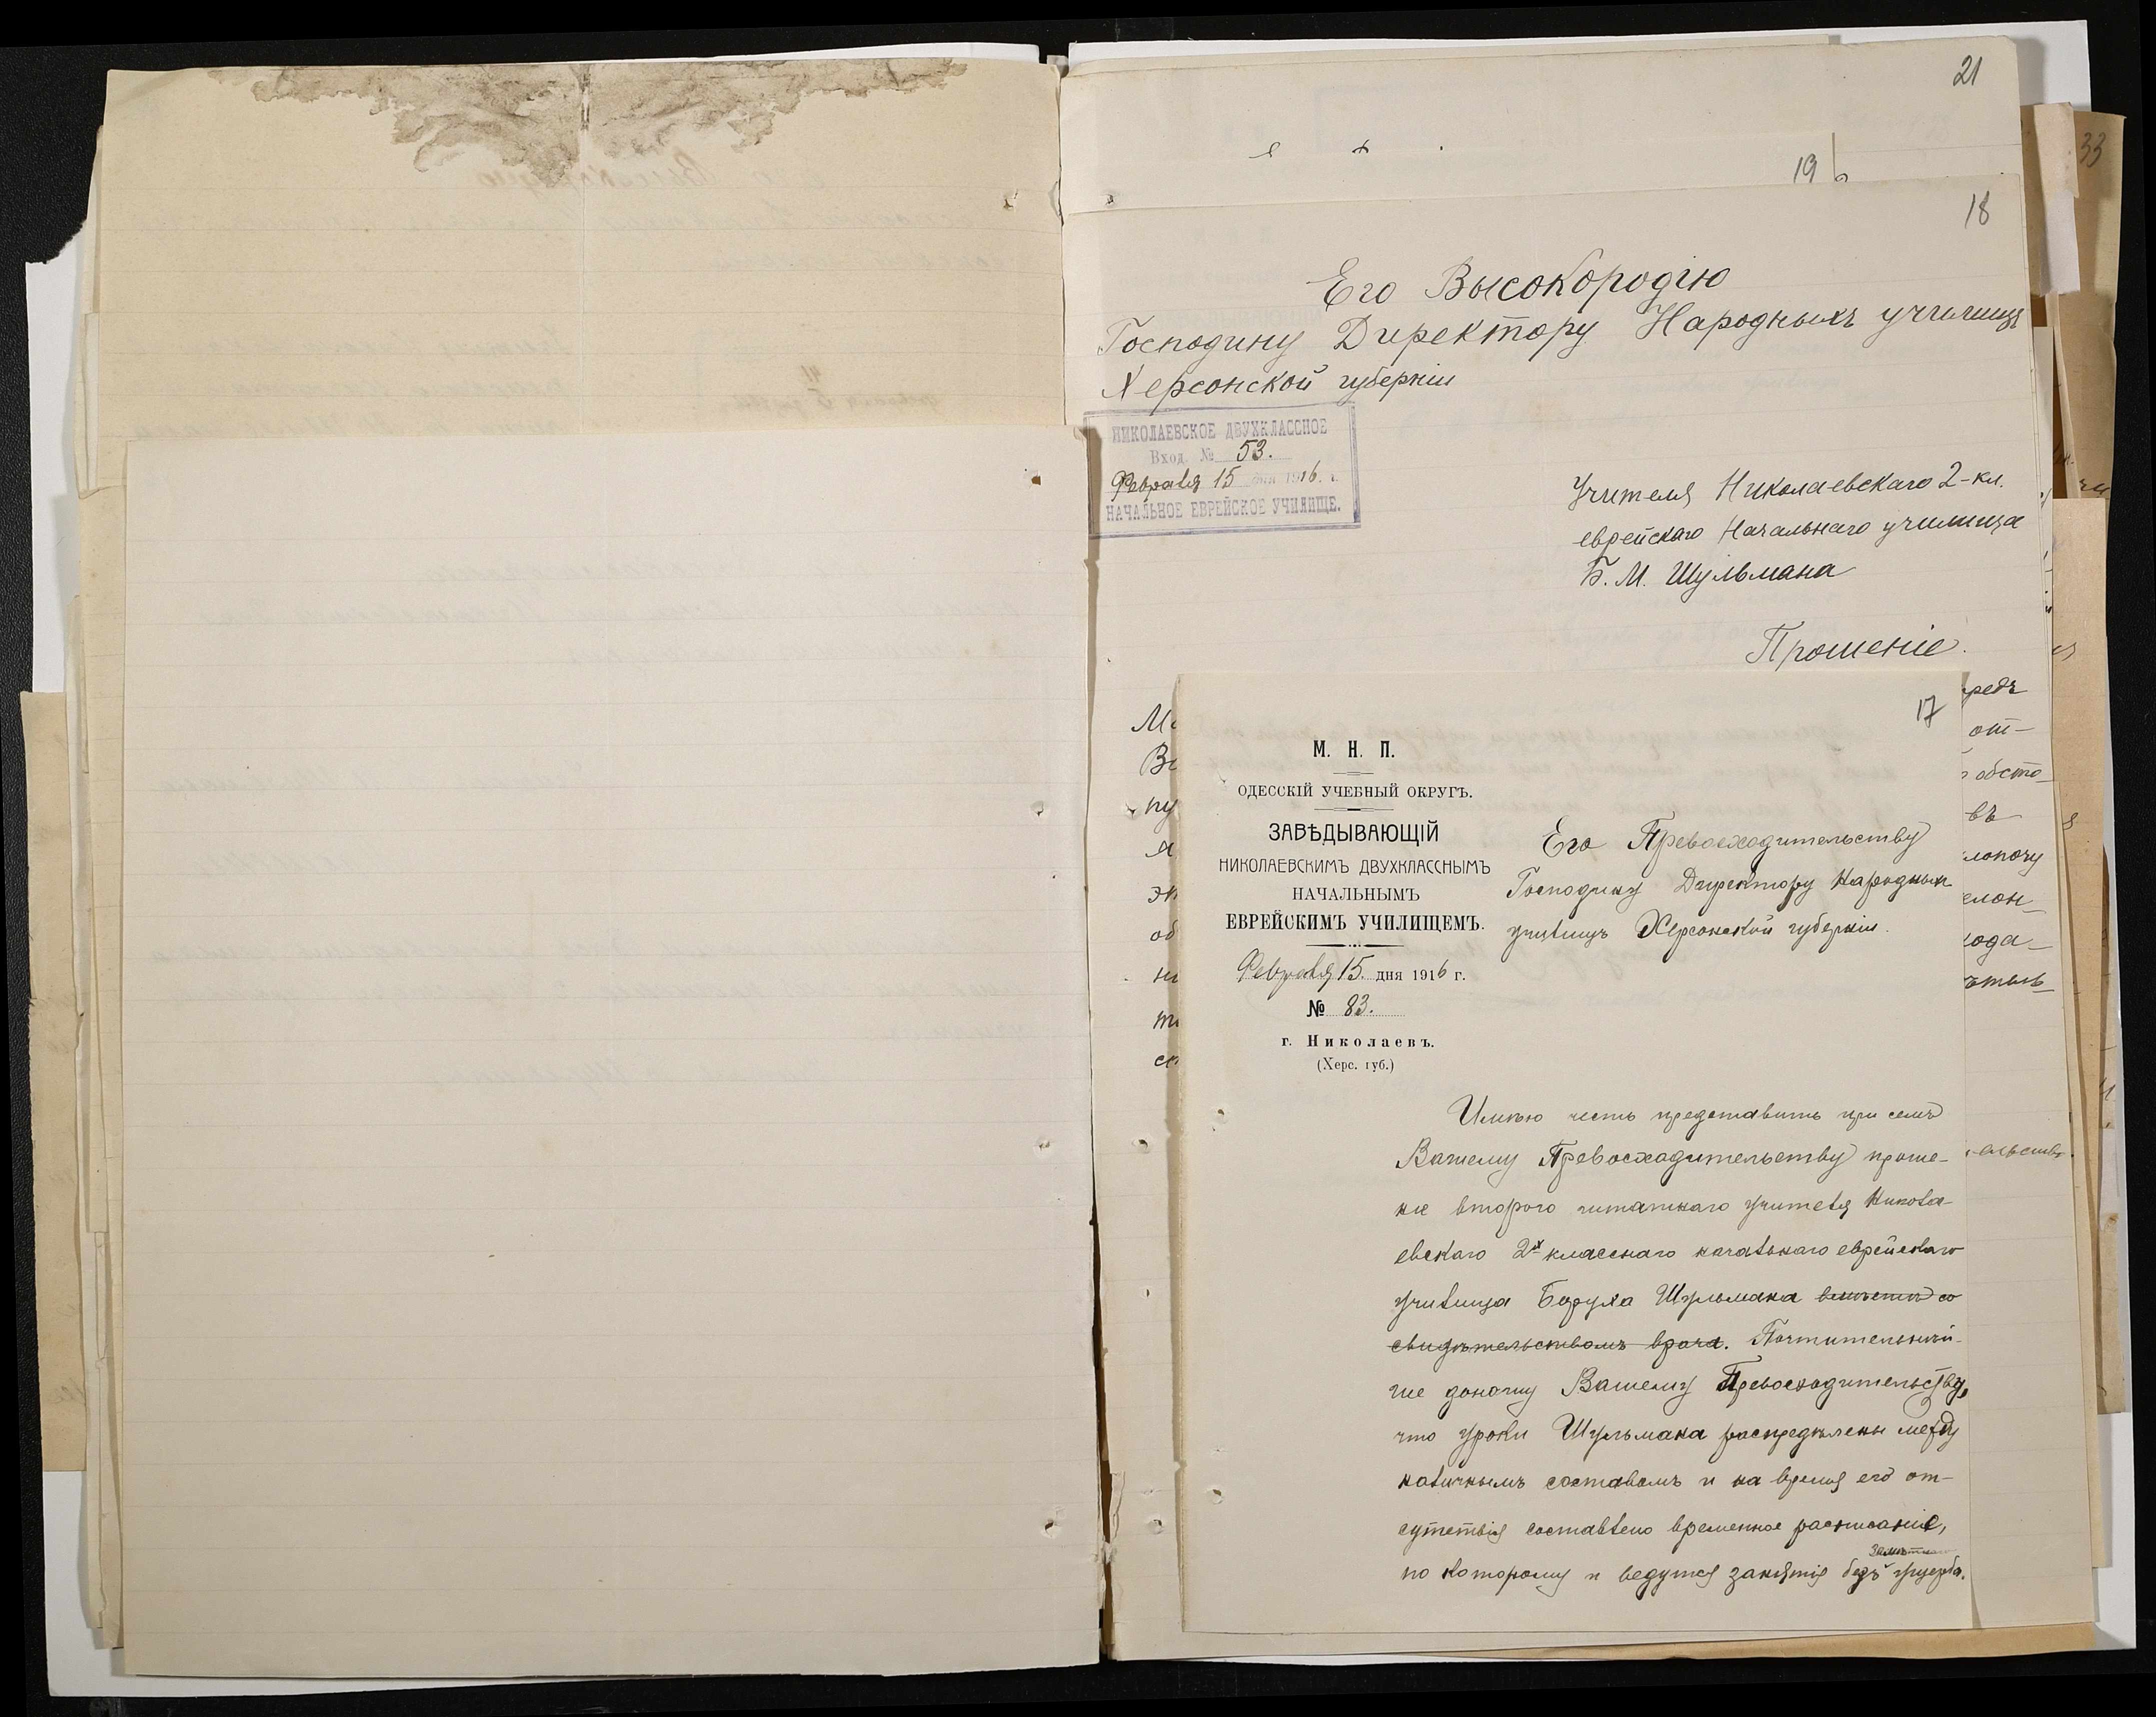 21
33
19
18
Его Высокородію
Господину Директору Народныхъ училищъ
Херсонской губерніи
НИКОЛАЕВСКОЕ ДВУХКЛАССНОЕ
Вход. № 53.
Февраля 15 дня 1916 г.
НАЧАЛЬНОЕ ЕВРЕЙСКОЕ УЧИЛИЩЕ.
Учителя Николаевскаго 2-кл.
еврейскаго Начальнаго училища
Б. М. Шульмана
Прошеніе.
17
М. Н. П.
ОДЕССКІЙ УЧЕБНЫЙ ОКРУГЪ.
ЗАВѢДЫВАЮЩІЙ
НИКОЛАЕВСКИМЪ ДВУХКЛАССНЫМЪ
НАЧАЛЬНЫМЪ
ЕВРЕЙСКИМЪ УЧИЛИЩЕМЪ.
Февраля 15 дня 1916 г.
№ 83.
г. Николаевъ.
(Херс. губ.)
Его Превосходительству
Господину Директору Народныхъ
училищъ Херсонской губерніи.
Имѣю честь представить при семъ
Вашему Превосходительству проше-
ніе второго штатнаго учителя Никола-
евскаго 2х класснаго начальнаго еврейскаго
училища Баруха Шульмана вмѣстѣ со
свидѣтельствомъ врача. Почтительнѣй-
ше доношу Вашему Превосходительству,
что уроки Шульмана распредѣлены между
наличнымъ составомъ и на время его от-
сутствія составлено временное расписаніе,
по которому и ведутся занятія безъ замѣтнаго ущерба.
редъ
от-
обсто-
въ
лопочу
елон-
хода-
Ме
Ва
пу
я
эк
об
ни
ти
ск